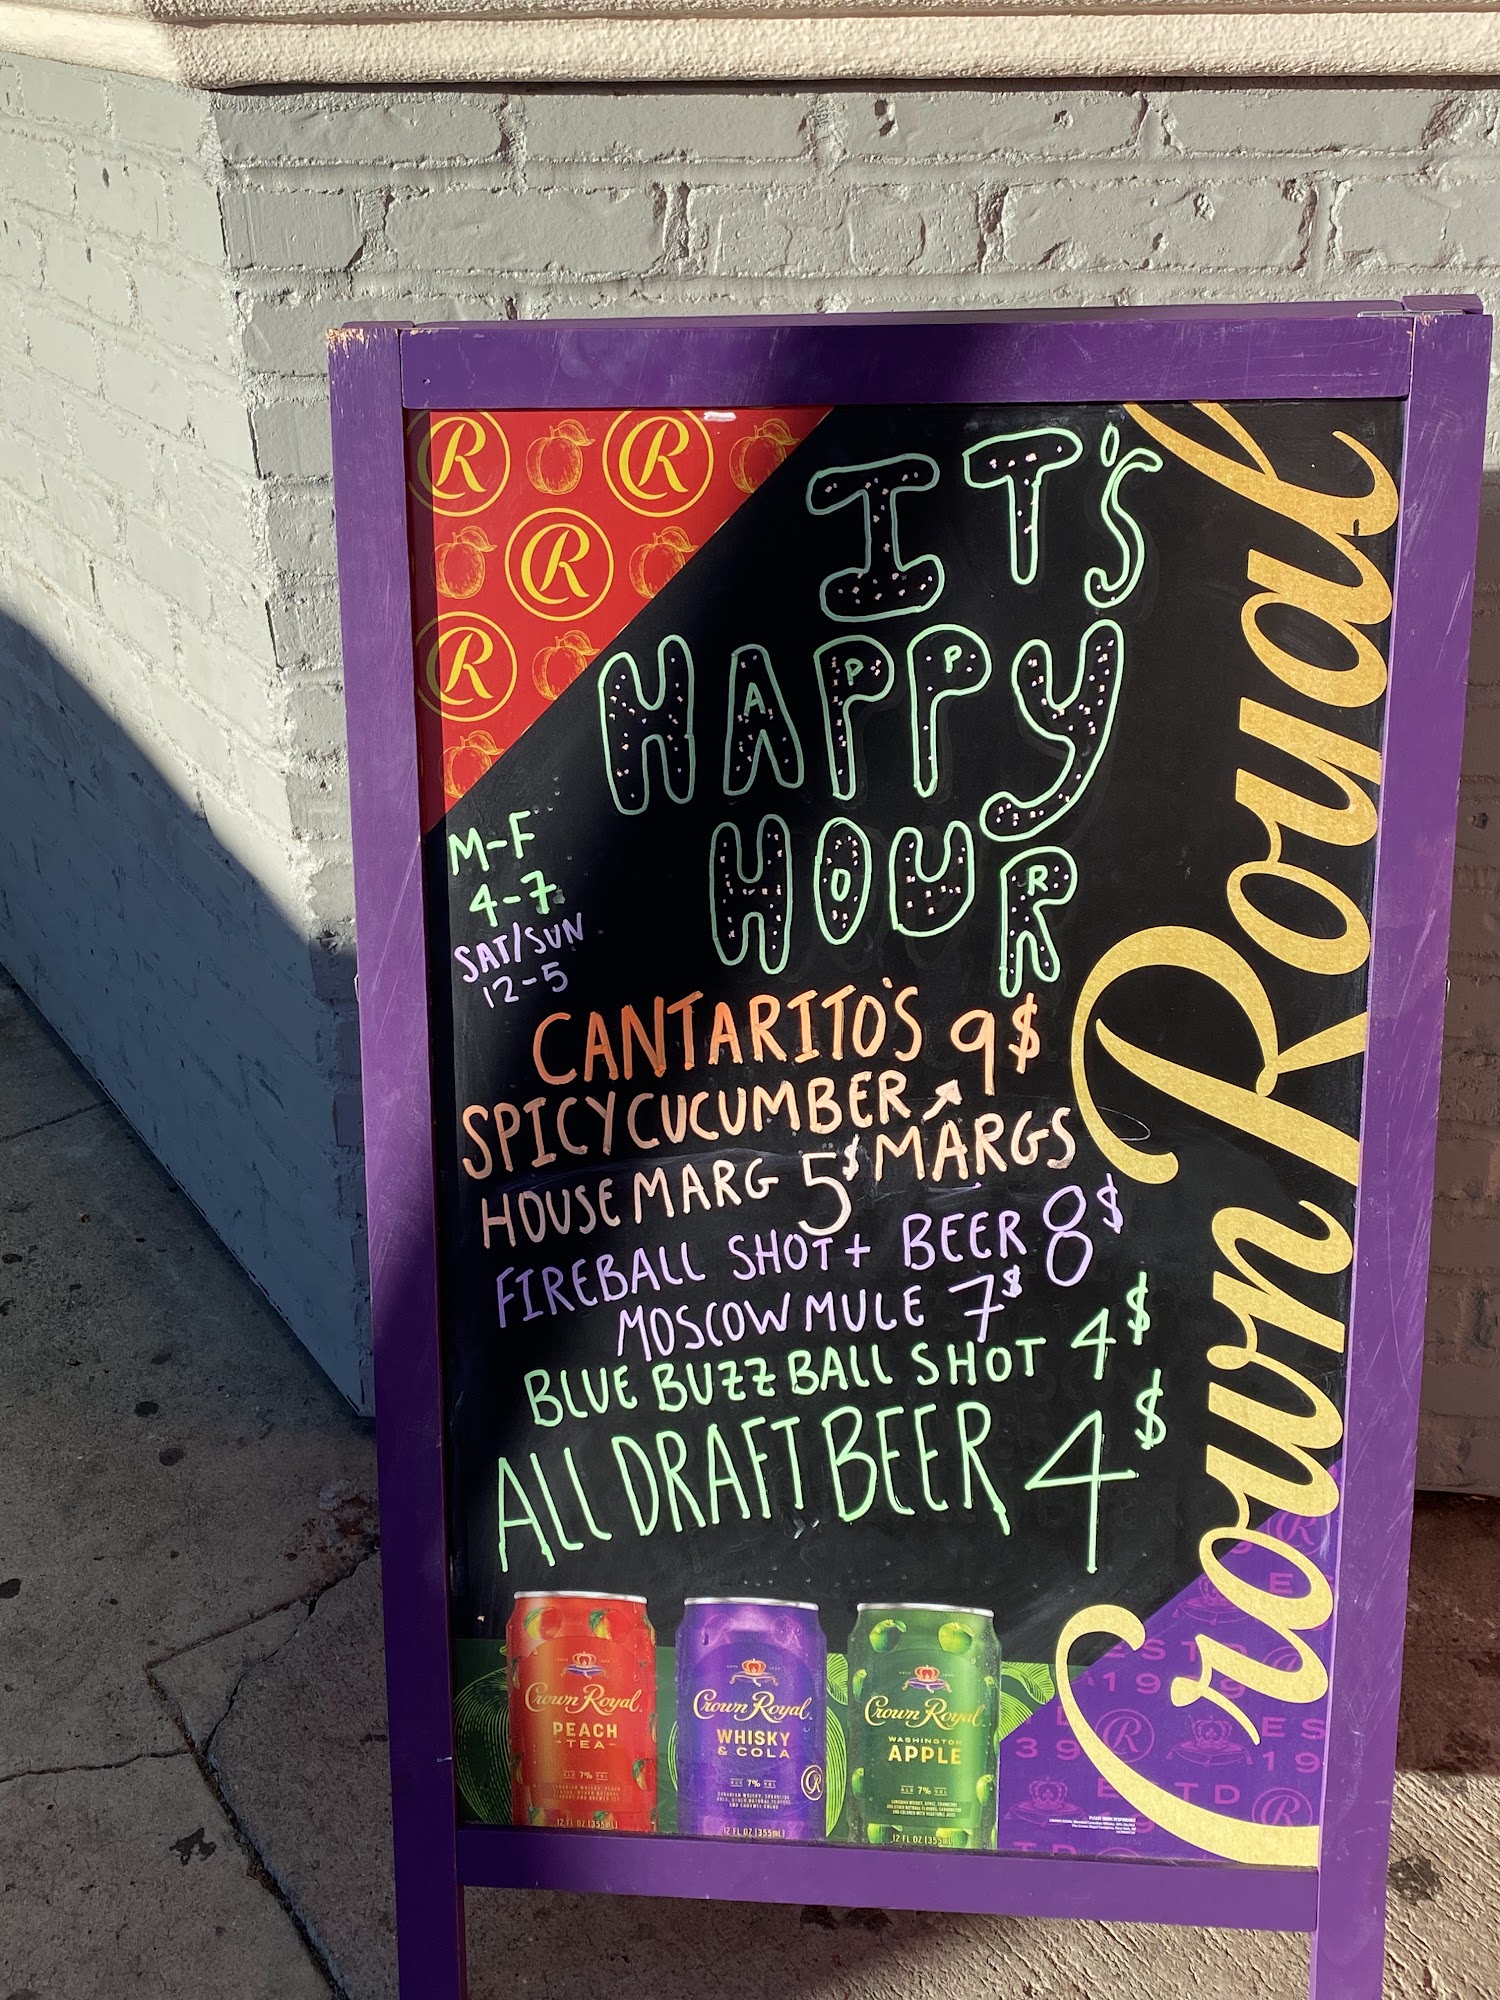 IT'S
HAPPY
HOUR
M-F
4-7
SAT/SUN
12-5
CANTARITO'S 9$
SPICY CUCUMBER
MARGS
HOUSE MARG 5$
FIREBALL SHOT + BEER 8$
MOSCOW MULE 7$
BLUE BUZZ BALL SHOT 4$
ALL DRAFT BEER 4$
Crown Royal
Crown Royal
PEACH
TEA
ALC 7% VOL
12 FL OZ (355mL)
Crown Royal
WHISKY
& COLA
ALC 7% VOL
12 FL OZ (355mL)
Crown Royal
WASHINGTON
APPLE
ALC 7% VOL
12 FL OZ (355mL)